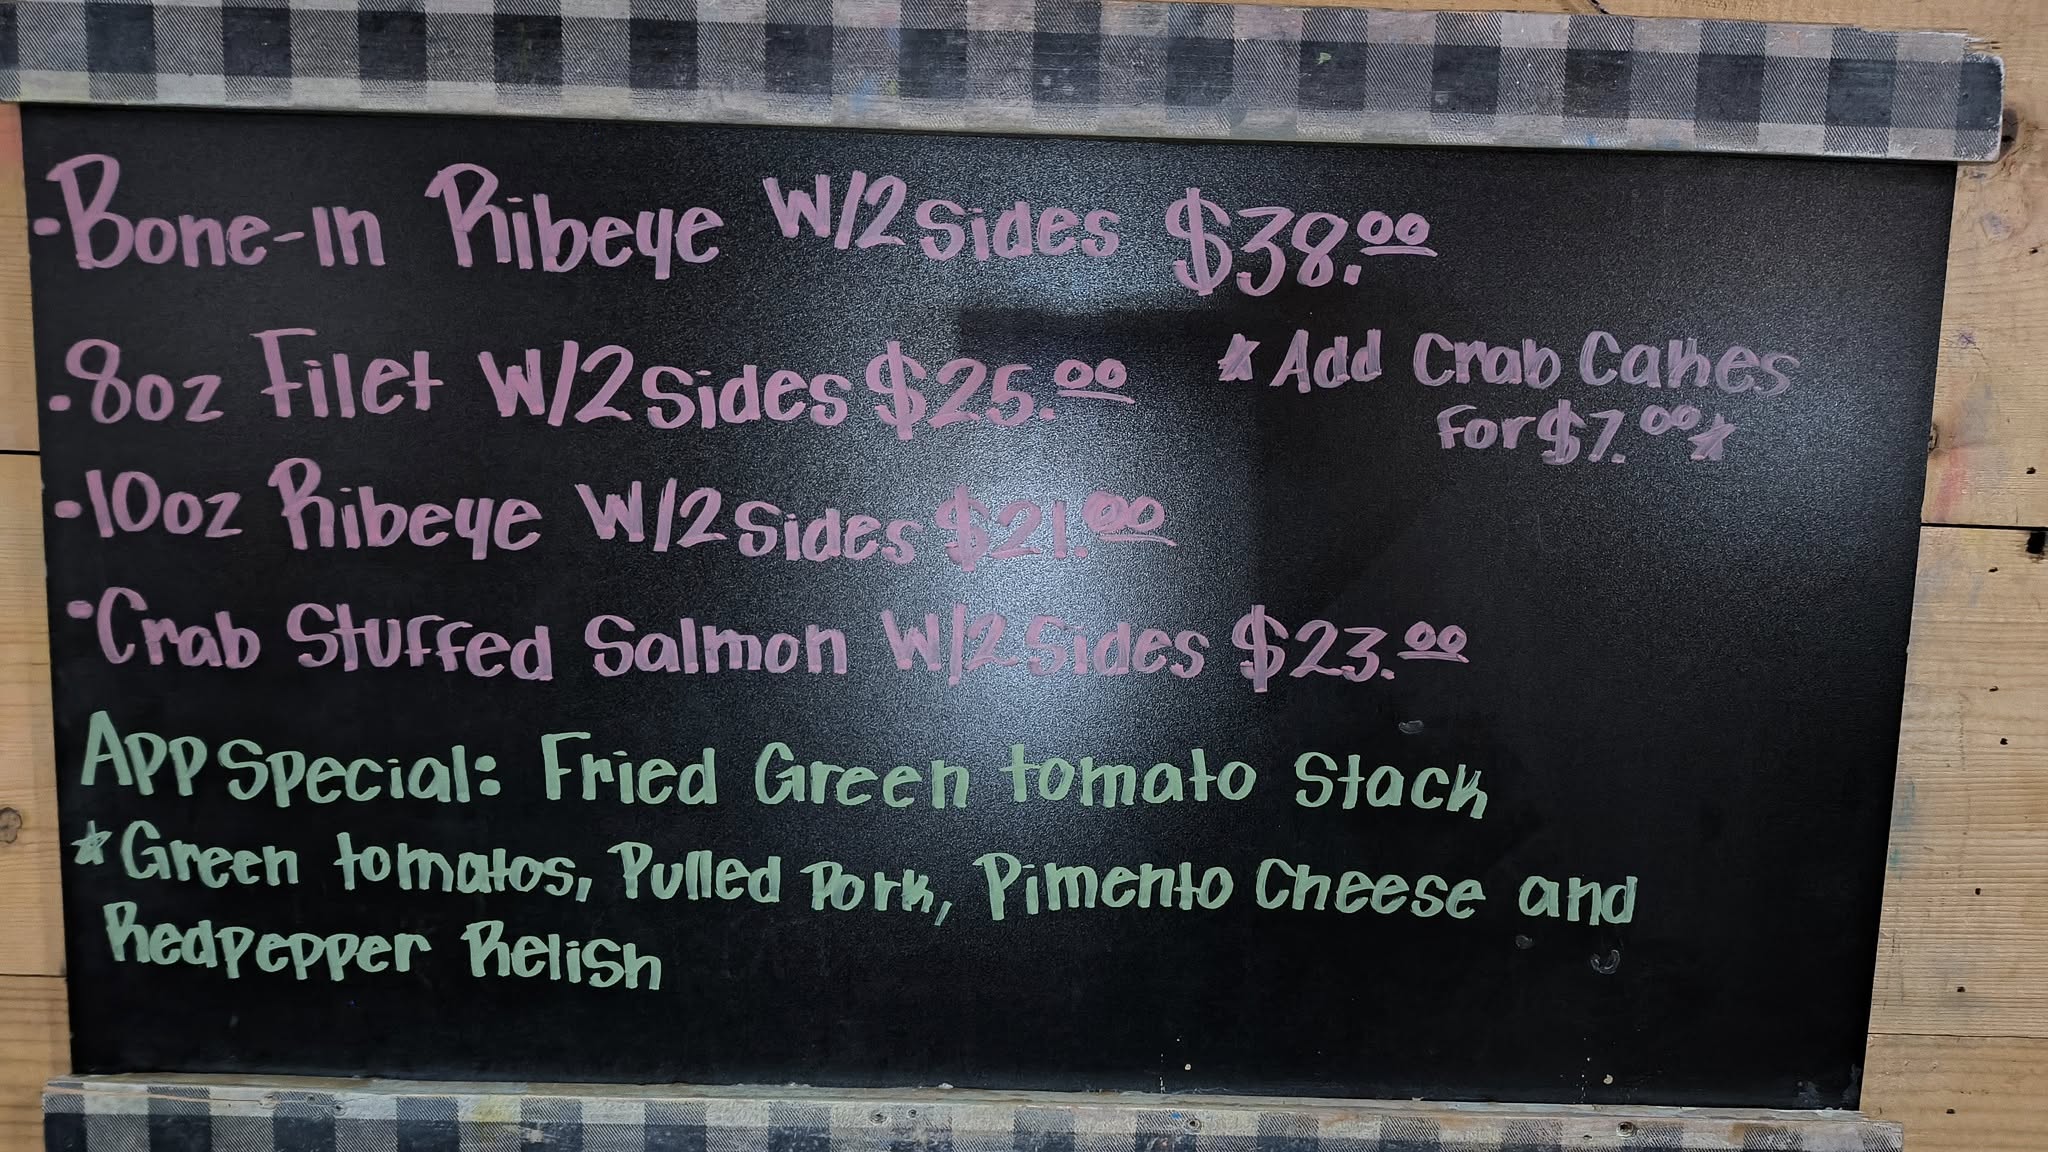 ·Bone-in Ribeye W/2 Sides $38.00
·8oz Filet W/2 Sides $25.00
*Add Crab Cakes
For $7.00*
·10oz Ribeye W/2 Sides $21.00
·Crab Stuffed Salmon W/2 Sides $23.00
App Special: Fried Green tomato Stack
*Green tomatos, Pulled Pork, Pimento Cheese and
Redpepper Relish